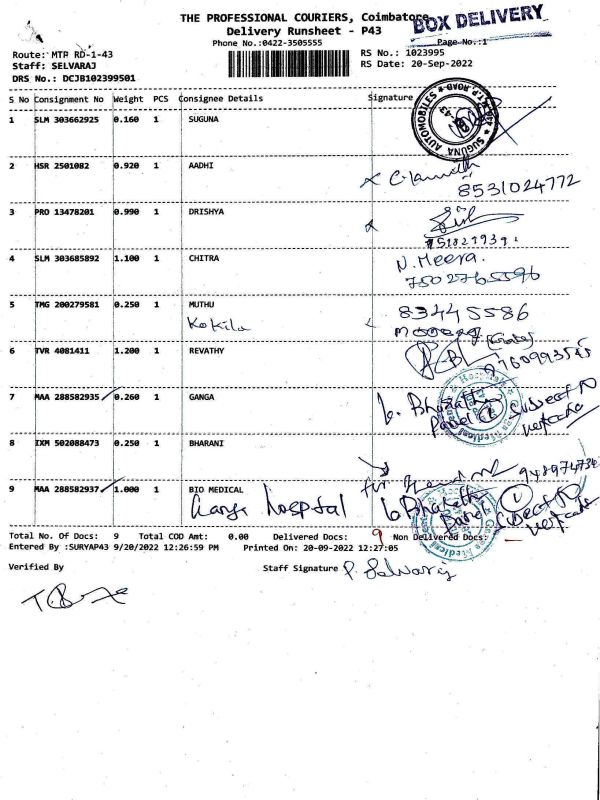 THE PROFESSIONAL COURIERS, Coimbatore
BOX DELIVERY
Delivery Runsheet - P43
Phone No.:0422-3505555
Page No.:1
Route: MTP RD-1-43
RS No.: 1023995
Staff: SELVARAJ
RS Date: 20-Sep-2022
DRS No.: DCJB102399501
S No Consignment No Weight PCS Consignee Details Signature
1 SLM 303662925 0.160 1 SUGUNA
SUGUNA AUTOMOBILES
2 HSR 2501082 0.920 1 AADHI
8531024772
3 PRO 13478201 0.990 1 DRISHYA
4 SLM 303685892 1.100 1 CHITRA
N. Meera.
7502765596
5 TMG 200279581 0.250 1 MUTHU
83445586
Kokila
6 TVR 4081411 1.200 1 REVATHY
7 MAA 288582935 0.260 1 GANGA
b. Bharathi
8 IXM 502088473 0.250 1 BHARANI
9 MAA 288582937 1.000 1 BIO MEDICAL
Ganga hospital b. Bharathi
Total No. Of Docs: 9 Total COD Amt: 0.00 Delivered Docs: 9 Non Delivered Docs: —
Entered By :SURYAP43 9/20/2022 12:26:59 PM Printed On: 20-09-2022 12:27:05
Verified By Staff Signature P. Selvaraj